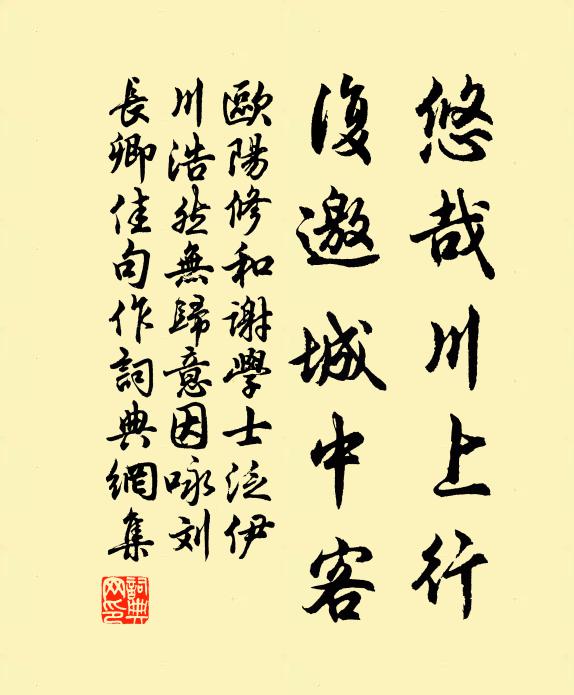 悠哉川上行
復邀城中客
歐陽修和謝學士泛伊
川浩然無歸意因咏刘
長卿佳句作詞典網集
詞典网印